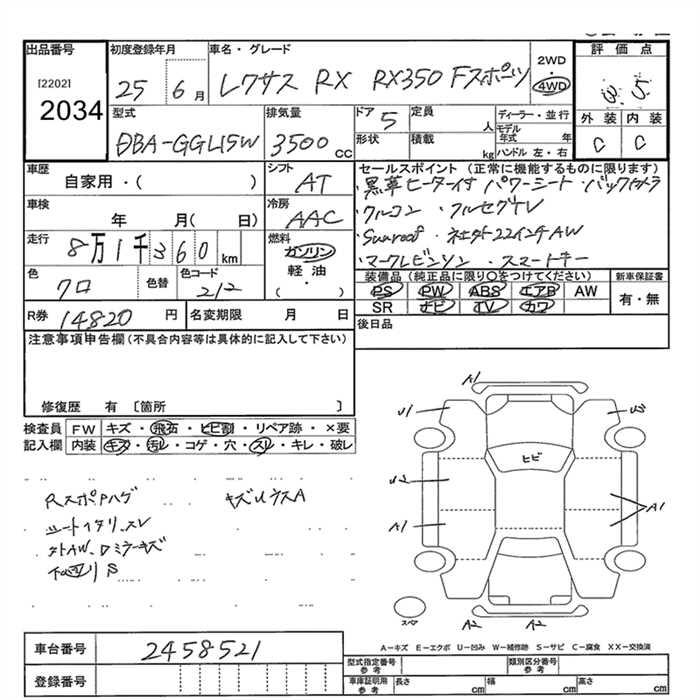 出品番号
[2202]
2034
初度登録年月
25 6月
車名・グレード
レクサス RX RX350 Fスポーツ
2WD
4WD
評価点
3.5
外装 内装
C C
型式
DBA-GGL15W
排気量
3500 CC
ドア 5
形状
定員
人
積載
kg
ディーラー・並行
モデル年式 年
ハンドル 左・右
車歴
自家用・( )
シフト
AT
車検
年 月( 日)
冷房
AAC
走行
8万1千360 km
燃料
ガソリン
軽油
( )
色
クロ
色替
色コード
212
R券 14820 円
名変期限 月 日
セールスポイント(正常に機能するものに限ります)
・黒革ヒーター付 パワーシート・バックカメラ
・クルコン ・フルセグTV
・Sunroof ・社外22インチAW
・マークレビンソン ・スマートキー
装備品(純正品に限り○をつけてください)
PS PW ABS エアB AW
SR ナビ TV カワ
新車保証書
有・無
後日品
注意事項申告欄(不具合内容等は具体的に記入して下さい)
修復歴 有〔箇所 〕
検査員記入欄
FW キズ・飛石・ヒビ割・リペア跡・×要
内装 キズ・汚レ・コゲ・穴・スレ・キレ・破レ
Rスポ
キズ
シート
外AW、ドミラーキズ
下回りS
A1
U1
U3
ヒビ
U2
A1
A1
スペア
A2
A2
A−キズ E−エクボ U−凹み W−補修跡 S−サビ C−腐食 XX−交換済
車台番号
2458521
登録番号
型式指定番号
参考
類別区分番号
参考
車庫証明用
参考
長さ cm
幅 cm
高さ cm